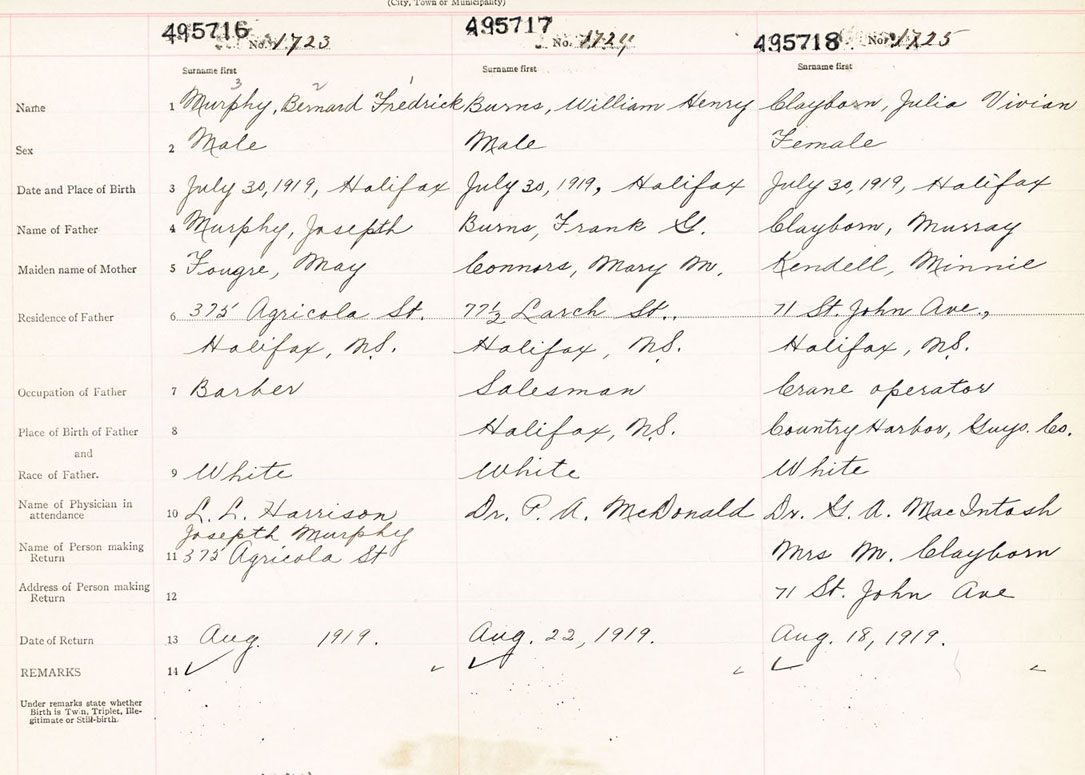 (City, Town or Municipality)
495716 No. 1723 495717 No. 1724 495718 No. 1725
Surname first Surname first Surname first
3 2 1
Name 1 Murphy, Bernard Fredrick Burns, William Henry Clayborn, Julia Vivian
Sex 2 Male Male Female
Date and Place of Birth 3 July 30, 1919, Halifax July 30, 1919, Halifax July 30, 1919, Halifax
Name of Father 4 Murphy, Josepth Burns, Frank G. Clayborn, Murray
Maiden name of Mother 5 Fougre, May Connors, Mary M. Kendell, Minnie
Residence of Father 6 375 Agricola St. 77½ Larch St., 71 St. John Ave.,
Halifax, N.S. Halifax, N.S. Halifax, N.S.
Occupation of Father 7 Barber Salesman Crane operator
Place of Birth of Father 8 Halifax, N.S. Country Harbor, Guys. Co.
and
Race of Father. 9 White White White
Name of Physician in
attendance 10 L. L. Harrison Dr. P. A. McDonald Dr. G. A. MacIntosh
Josepth Murphy
Name of Person making
Return 11 375 Agricola St Mrs M. Clayborn
Address of Person making
Return 12 71 St. John Ave
Date of Return 13 Aug. 1919. Aug. 22, 1919. Aug. 18, 1919.
REMARKS 14 ✓ ✓ ✓
Under remarks state whether
Birth is Twin, Triplet, Ille-
gitimate or Still-birth.